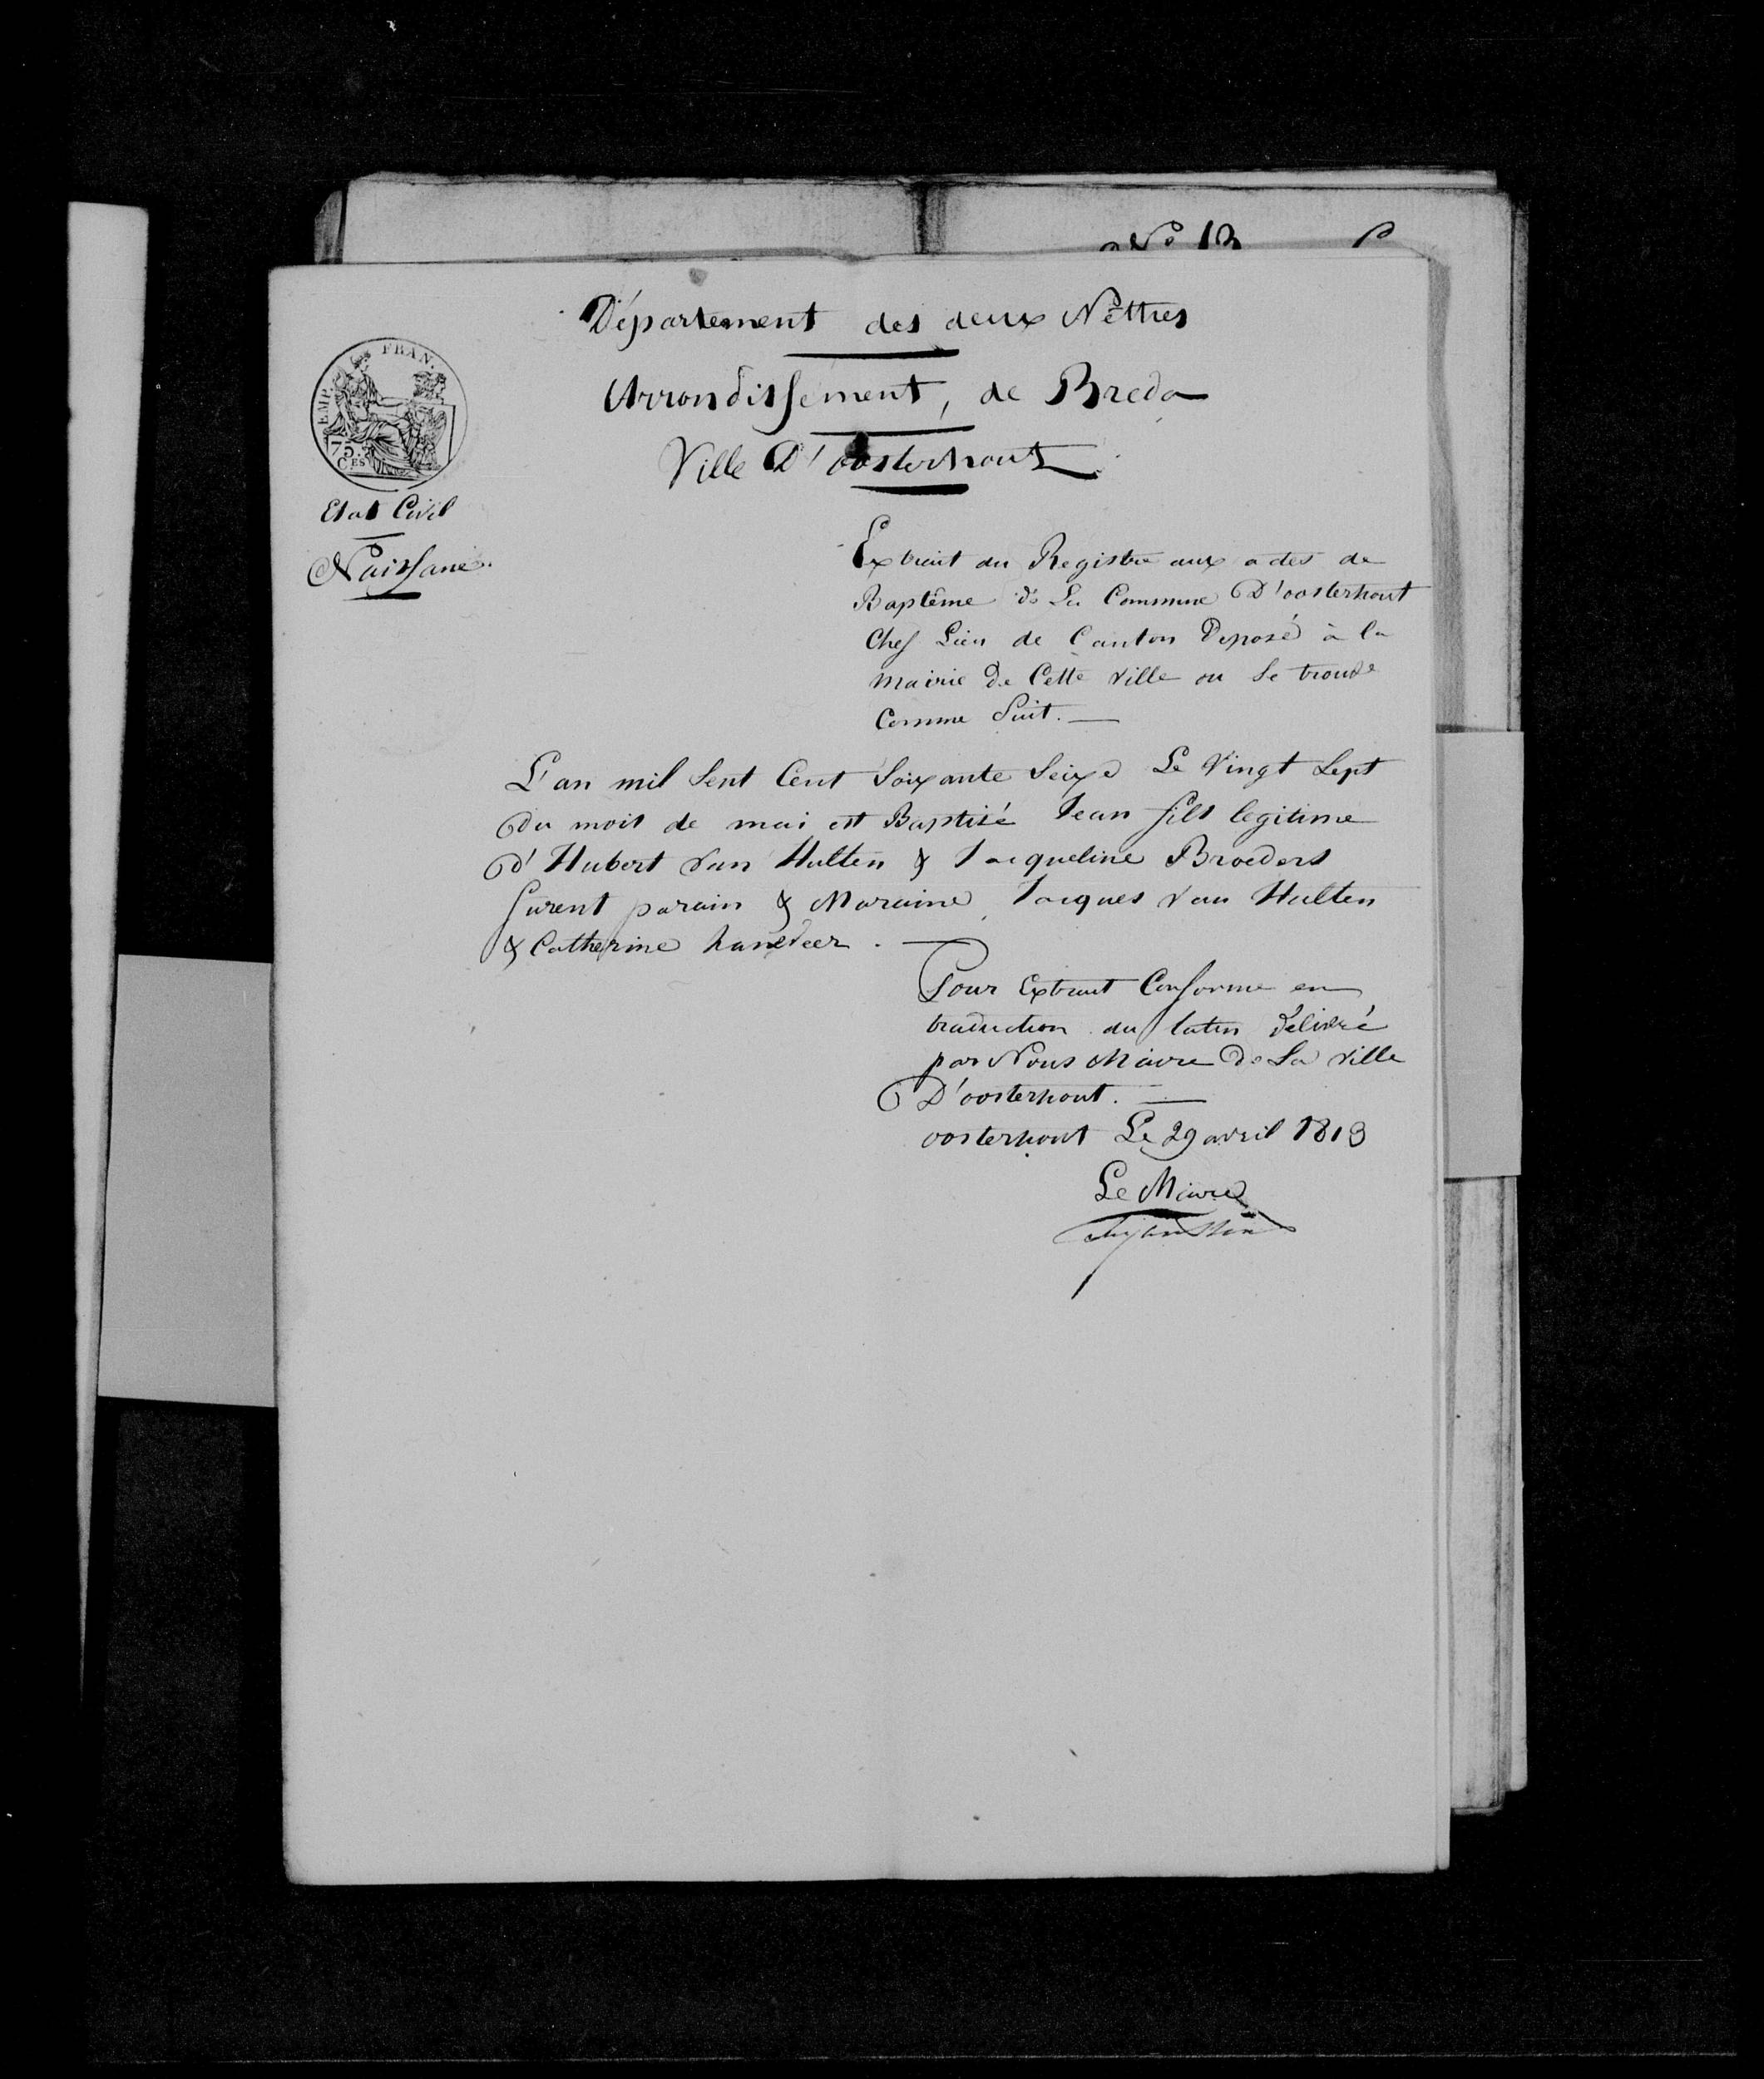 No 13
Département des deux Nêthes
Arrondissement, de Breda
Ville D'oosterhout
EMP. FRAN.
75.
CES
Etat Civil
Naissance.
Extrait du Registre aux actes de
Baptême de La Commune D'oosterhout
Chef Lieu de Canton Deposé à la
mairie De Cette Ville ou Se trouve
Comme Suit.
L'an mil Sept Cent Soixante Seize Le Vingt Sept
Du mois de mai est Baptisé Jean fils legitime
d'Hubert Van Hulten & Jacqueline Broeders
furent parain & Maraine, Jacques Van Hulten
& Catherine
Pour Extrait Conforme en
traduction du latin délivré
par Nous Maire De La Ville
D'oosterhout.
oosterhout Le 29 avril 1813
Le Maire